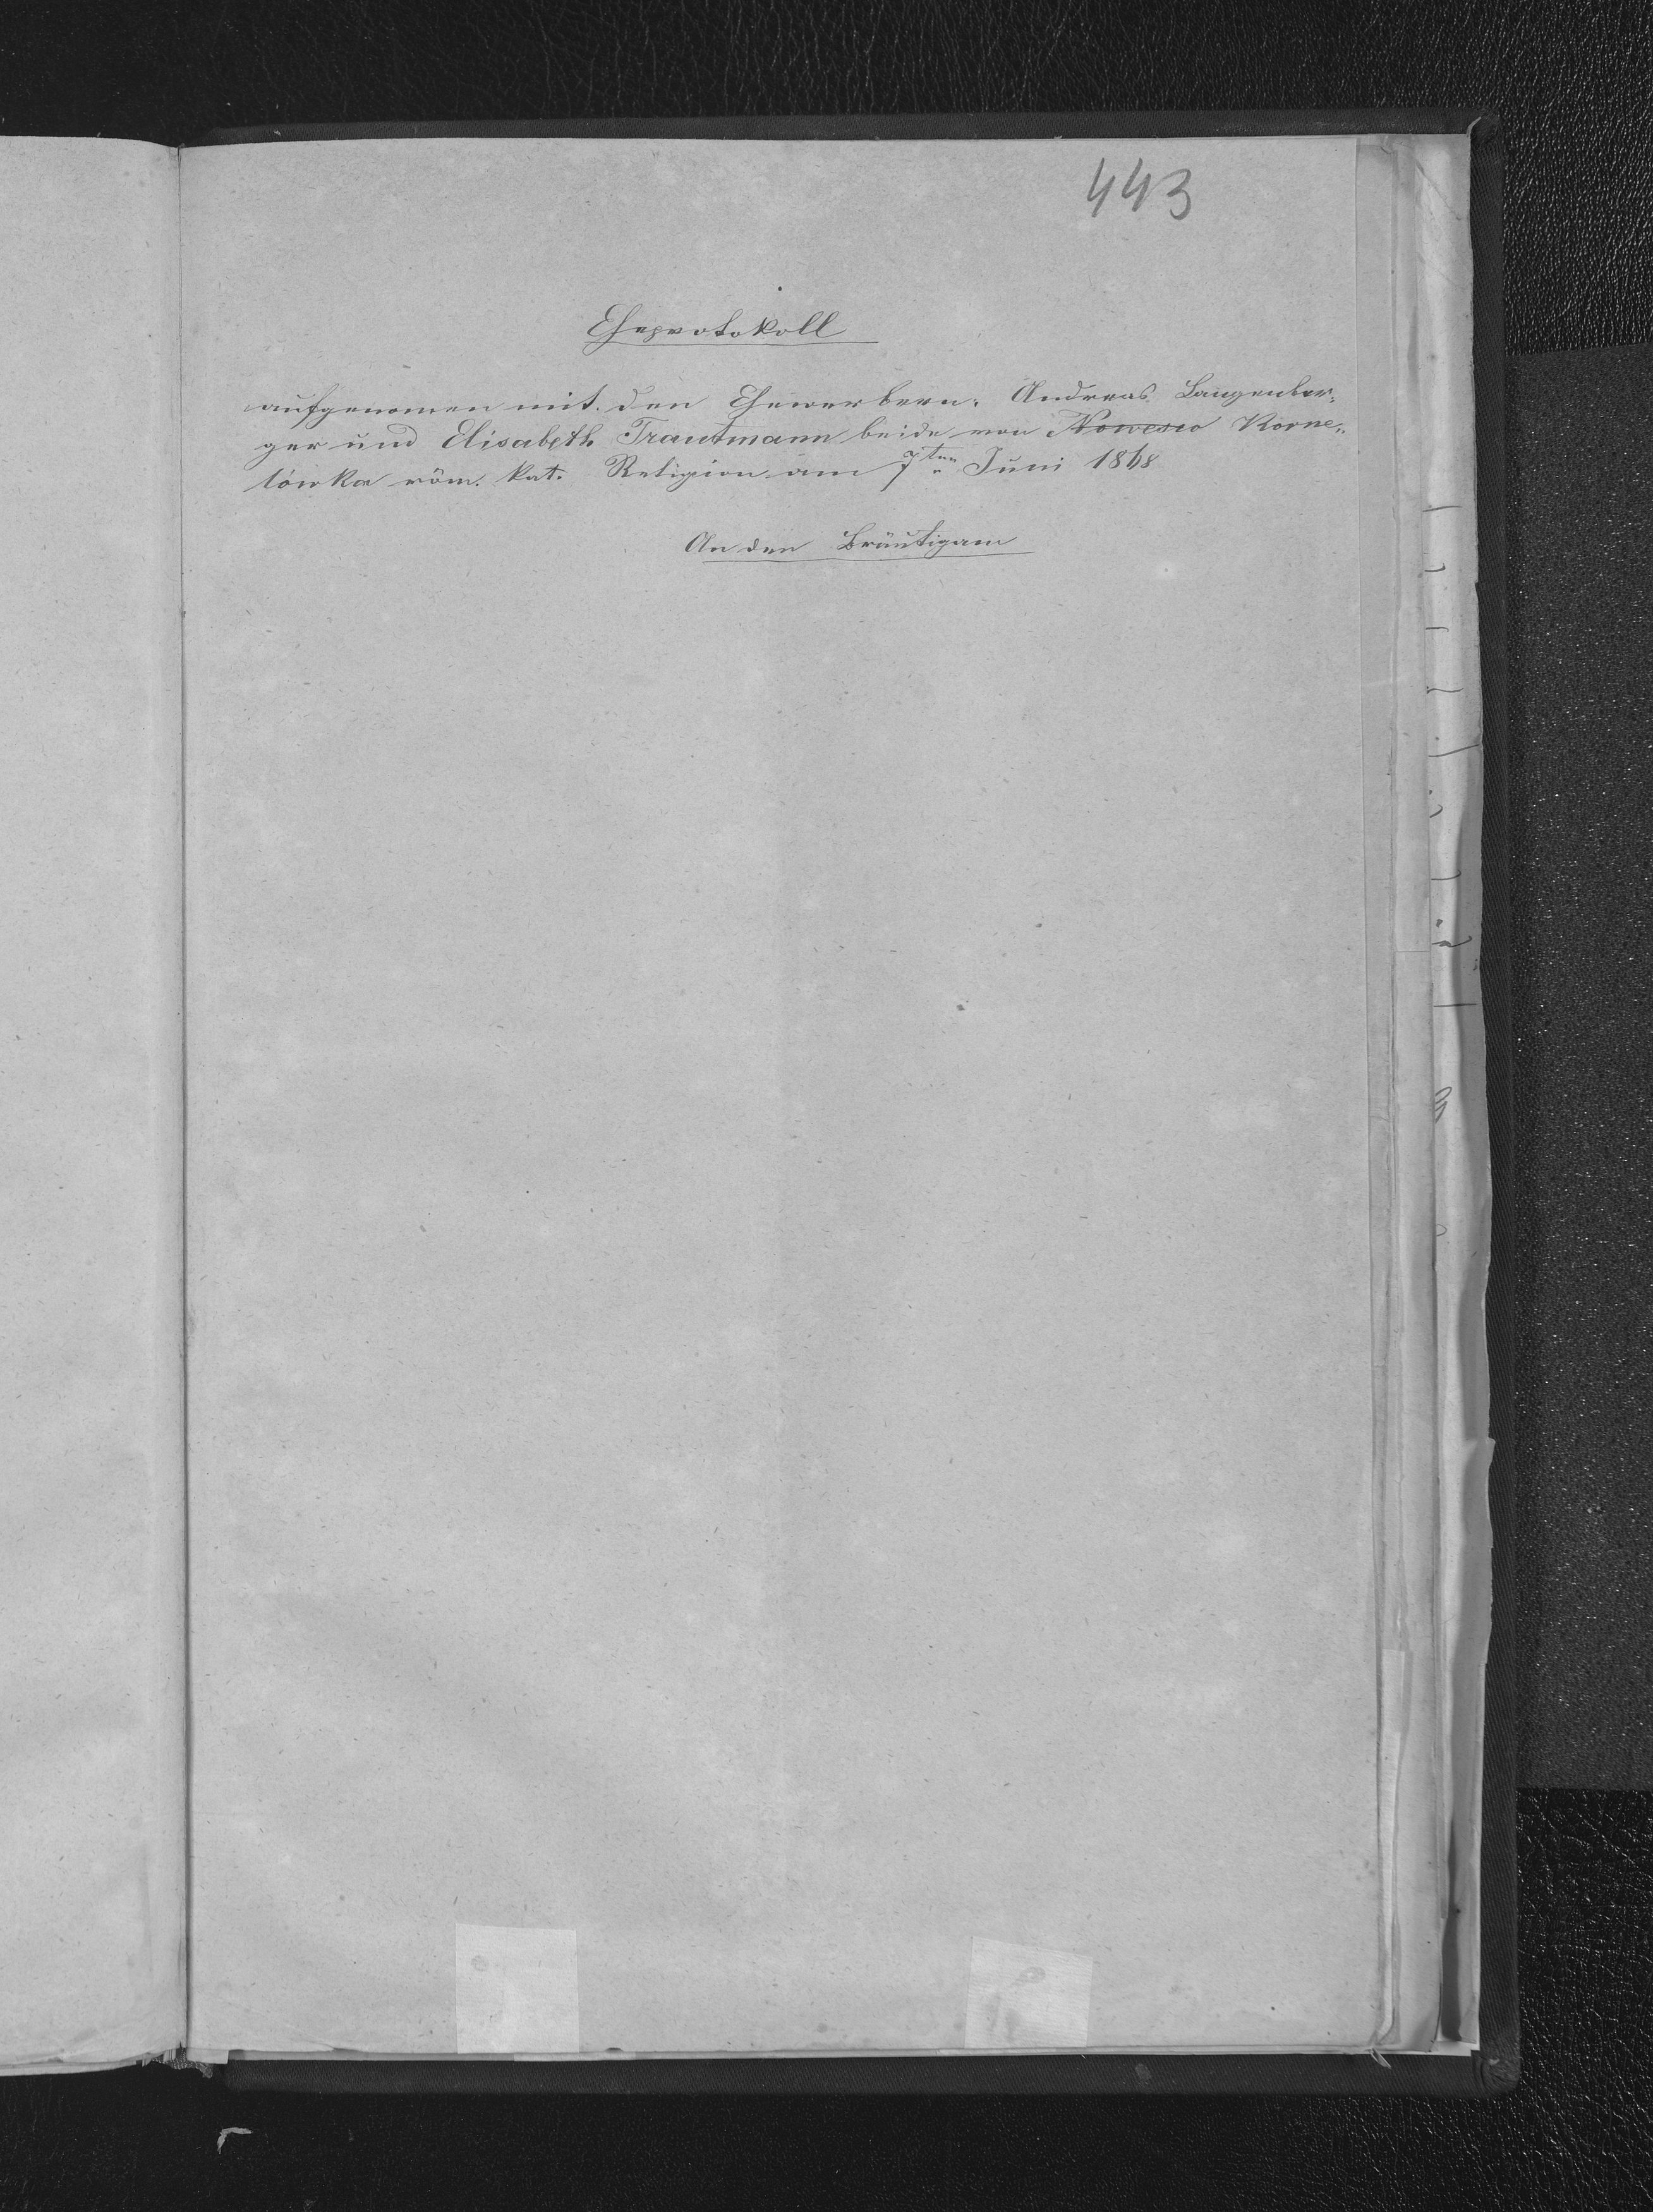 443
Eheprotokoll
aufgenomen mit den Ehewerbern: Andreas Langenber-
ger und Elisabeth Trautmann beide von Nowesio Korne-
lówka röm. kat. Religion am 7ten Juni 1868
An den Bräutigam